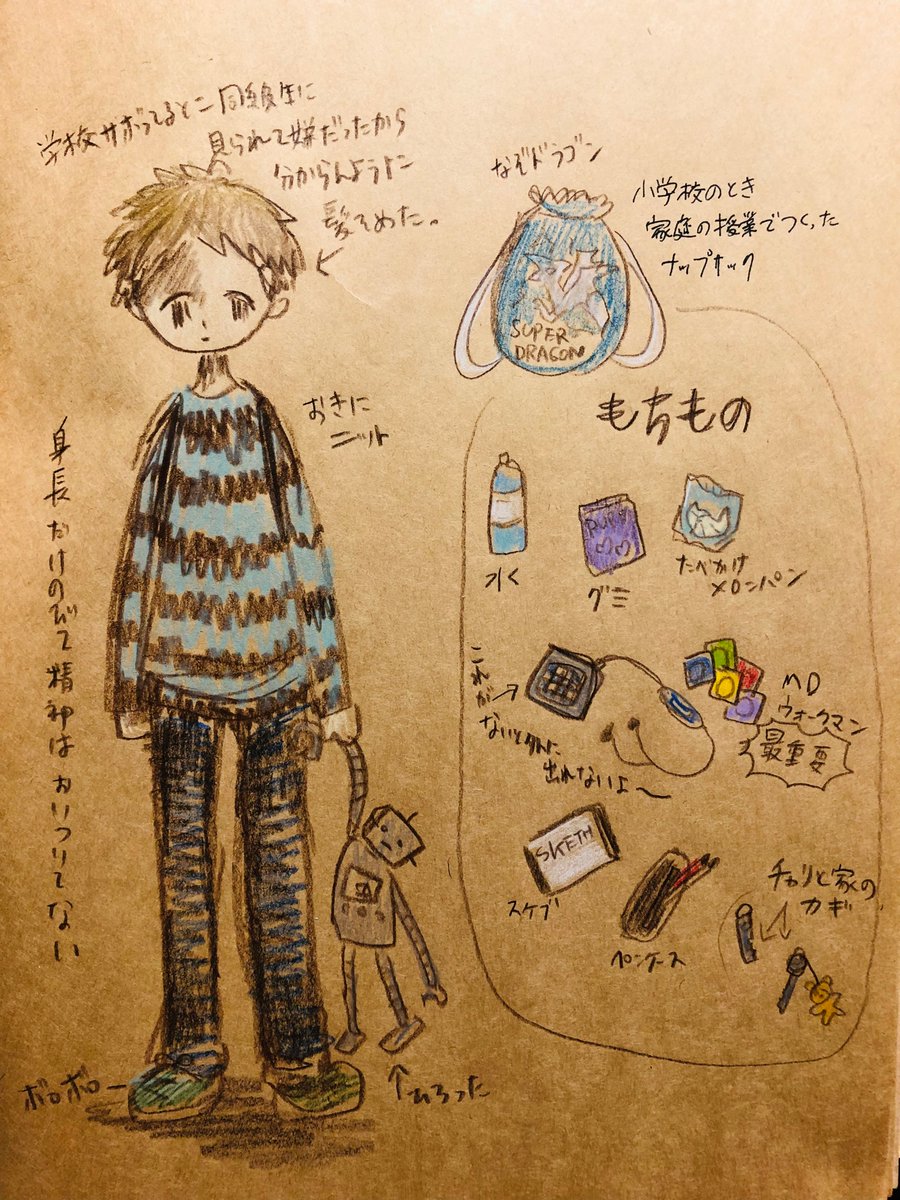 学校サボってるとこ同級生に
見られて嫌だったから
分からんように
髪そめた。
おきに
ニット
身長だけのびて精神はおいついてない
ボロボロ
ひろった
なぞドラゴン
小学校のとき
家庭の授業でつくった
ナップサック
SUPER
DRAGON
もちもの
水
PUPU
グミ
たべかけ
メロンパン
これが
ないと外に
出れないよ〜
MD
ウォークマン
最重要
SKETH
スケブ
ペンケース
チャリと家の
カギ